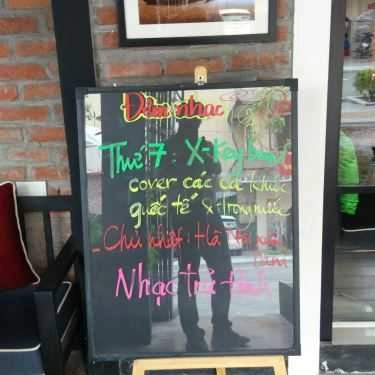 Đêm nhạc
Thứ 7: X-Key band
cover các ca khúc
quốc tế & trong nước
- Chủ nhật: Hà
Nhạc trữ tình